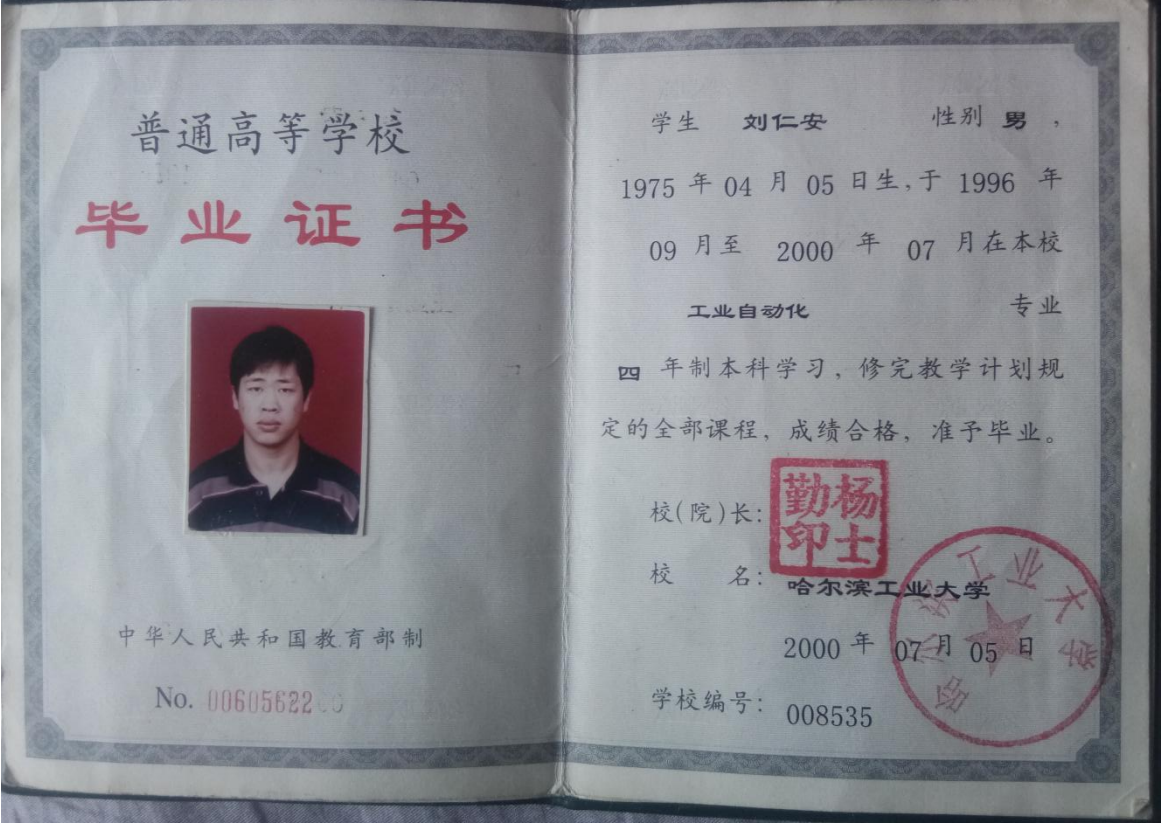 普通高等学校
毕业证书
中华人民共和国教育部制
No. 00605622
学生 刘仁安 性别 男，
1975 年 04 月 05 日生，于 1996 年
09 月至 2000 年 07 月在本校
工业自动化 专业
四 年制本科学习，修完教学计划规
定的全部课程，成绩合格，准予毕业。
校(院)长：
杨士勤印
校 名：哈尔滨工业大学
哈尔滨工业大学
2000 年 07 月 05 日
学校编号：008535